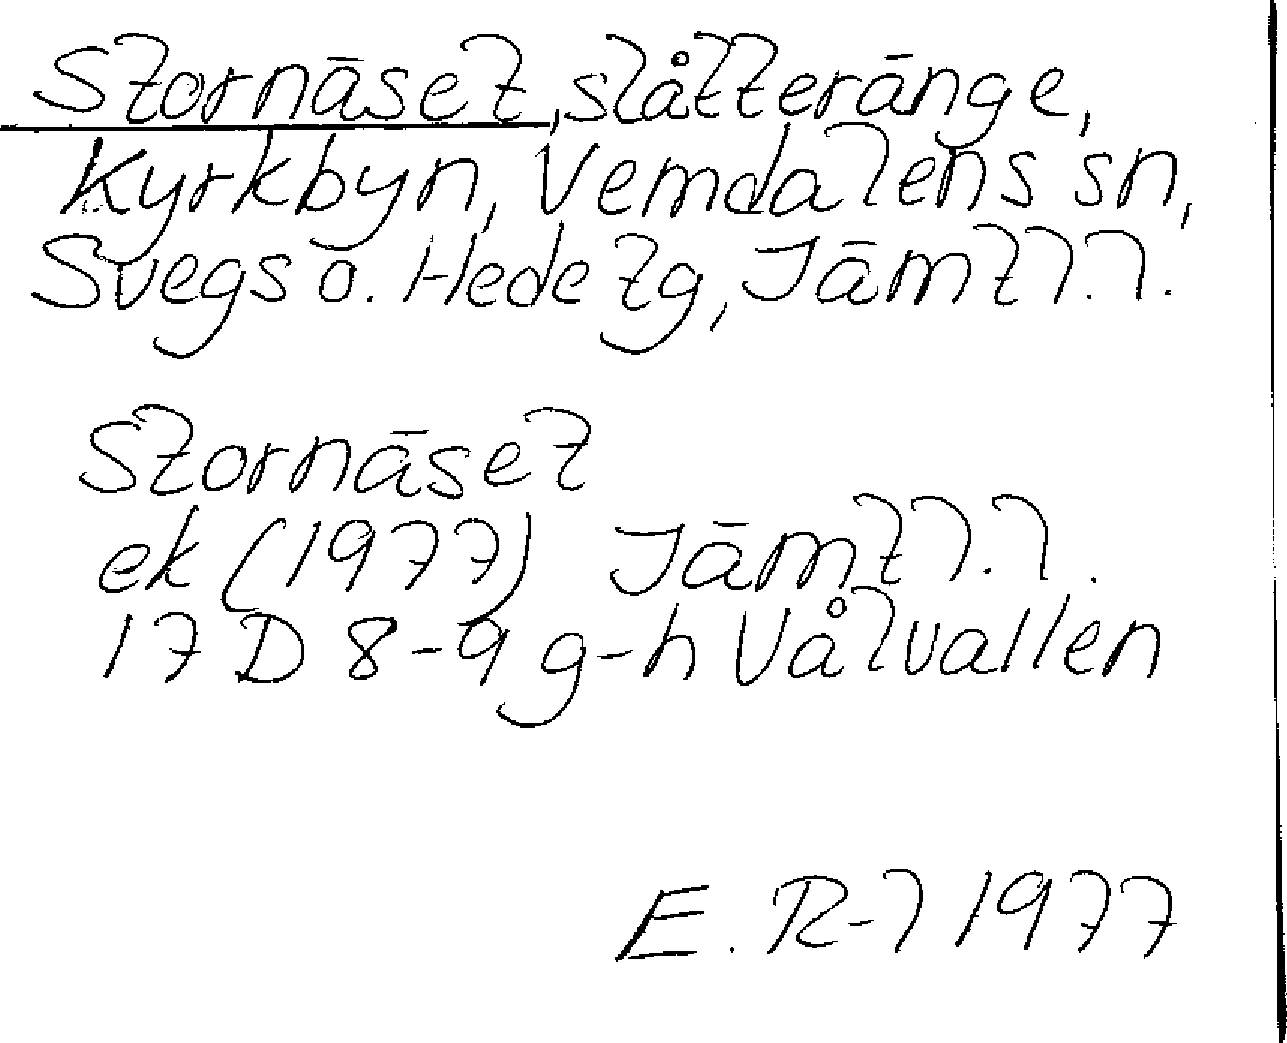 Stornäset, slåtteränge,
Kyrkbyn, Vemdalens sn,
Svegs o. Hede tg, Jämtl.l.
Stornäset
ek (1977) Jämtl.l.
17 D 8-9 g-h Vålvallen
E. R-l 1977